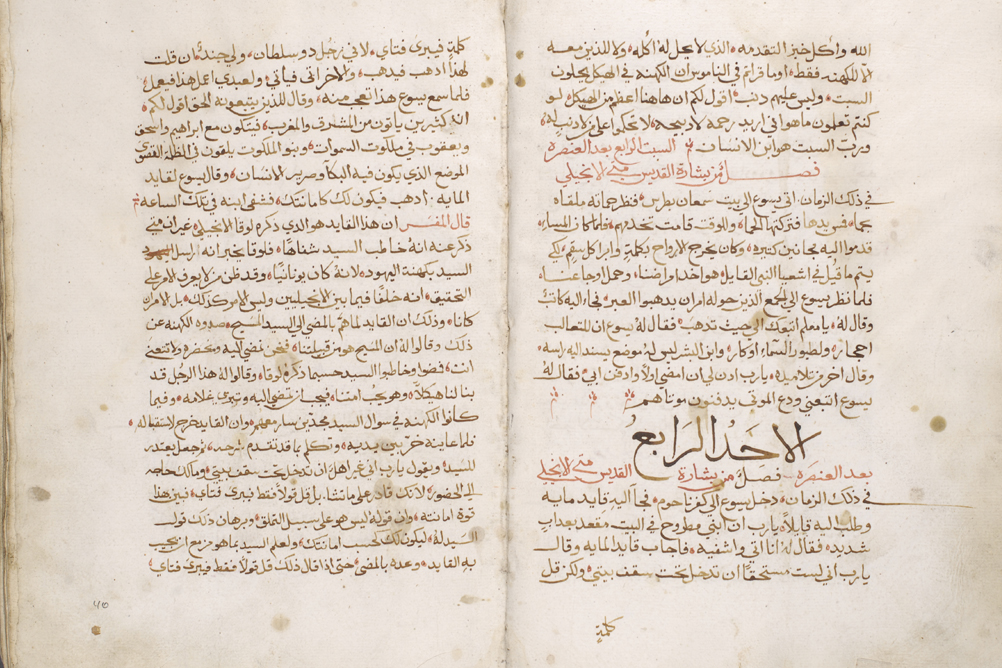 الله واكل خبز التقدمه الذي لا يحل له اكله ولا للذين معه
الا للكهنه فقط اوما قراتم في الناموس ان الكهنه في الهيكل يحلون
السبت وليس عليهم ذنب اقول لكم ان هاهنا اعظم من الهيكل لو
كنتم تعلمون ما هو اني اريد رحمه لا ذبيحه لا تحكموا على من لا ذنب له
ورب السبت هو ابن الانسان السبت الرابع بعد العنصره
فصل من بشارة القديس متى الانجيلي
في ذلك الزمان اتى يسوع الى بيت سمعان بطرس فنظر حماته ملقاه
بحماه فمس يدها فتركتها الحما وللوقت قامت تخدمهم فلما كان المساء
قدموا اليه مجانين كثيره وكان يخرج الارواح بكلمة وابرا كل سقيم لكي
يتم ما قيل في اشعيا النبي القايل هو اخذ امراضنا وحمل اوجاعنا
فلما نظر يسوع الى الجمع الذين حوله امر ان يذهبوا العبر فجاء اليه كاتب
وقال له يا معلم اتبعك الى حيث تذهب فقال له يسوع ان للثعالب
احجار ولطيور السماء اوكار وابن البشر ليس له موضع يسند اليه راسه
وقال اخر من تلاميذه يا رب اذن لي ان امضي اولا وادفن ابي فقال له
يسوع اتبعني ودع الموتى يدفنون موتاهم
الاحد الرابع
بعد العنصره فصل من بشارة القديس متى الانجيلي
في ذلك الزمان دخل يسوع الى كفرناحوم فجا اليه قايد مايه
وطلب اليه قايلا يا رب ان ابني مطروح في البيت مقعد بعذاب
شديد فقال له انا اتي واشفيه فاجاب قايد المايه وقال
يا رب اني لست مستحقا ان تدخل تحت سقف بيتي ولكن قل
كلمة
كلمة فيبرى فتاي لاني رجل ذو سلطان ولي جند ان قلت
لهذا اذهب فيذهب والاخر اتى فياتي ولعبدي اعمل هذا فيعمل
فلما سمع يسوع هذا تعجب منه وقال للذين يتبعونه الحق اقول لكم
ان كثيرين ياتون من المشرق والمغرب فيتكون مع ابراهيم واسحق
ويعقوب في ملكوت السموات وبنو الملكوت يلقون في الظلمة القصوى
الموضع الذي يكون فيه البكا وصرير الاسنان وقال يسوع لقايد
المايه اذهب فيكون لك كامانتك فشفي ابنه في تلك الساعه
قال المفسر ان هذا القايد هو الذي ذكره لوقا الانجيلي غير ان متى
ذكر عنه انه خاطب السيد شفاها فلوقا يخبر انه ارسل
السيد بكهنة اليهود لانه كان يونانيا وقد ظن من لا يعرف الامر على
التحقيق انه خلفا فيما بين الانجيليين وليس الامر كذلك بل الامران
كانا وذلك ان القايد لما هم بالمضي الى السيد المسيح صدوه الكهنه عن
ذلك وقالوا له ان المسيح هو من قبيلتنا فنحن نمضي اليه ونحضره ولا تتعنى
انت فمضوا وخاطبوا السيد حسبما ذكره لوقا وقالوا له هذا الرجل قد
بنا لنا هيكلا وهو يحب امتنا فيجب ان تمضي اليه وتبري غلامه وفيما
كانوا الكهنه في سوال السيد معهم وان القايد خرج لاستقباله
فلما عاينه خر بين يديه وتكلم بما قد تقدم شرحه وجعل يعتذر
للسيد ويقول يا رب اني غير اهل ان تدخل تحت سقف بيتي ومالك حاجه
الى الحضور لانك قادر على ما تشا بل قل قولا فقط فيبرى فتاي فبين هذا
قوة امانته وان قوله ليس هو على سبيل التملق وبرهان ذلك قول
السيد له ليكون لك بحسب امانتك ولعلم السيد بما هو مزمع ان يجيب
به القايد وعده بالمضي حتى اذا قال ذلك قل قولا فقط فيبرى فتاي